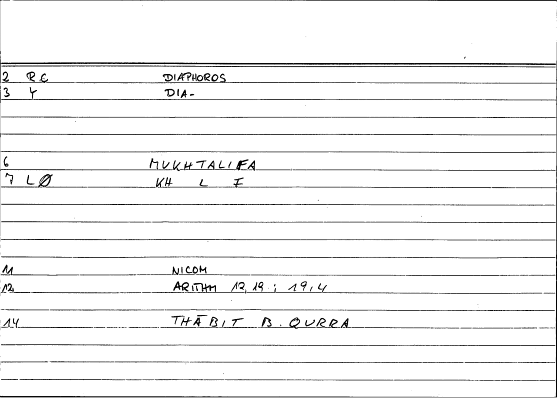 2 RC DIAPHOROS
3 Y DIA-
6 MUKHTALIFA
7 LØ KH L F
11 NICOM
12 ARITHM 12,19.; 19,4
14 THĀBIT B. QURRA